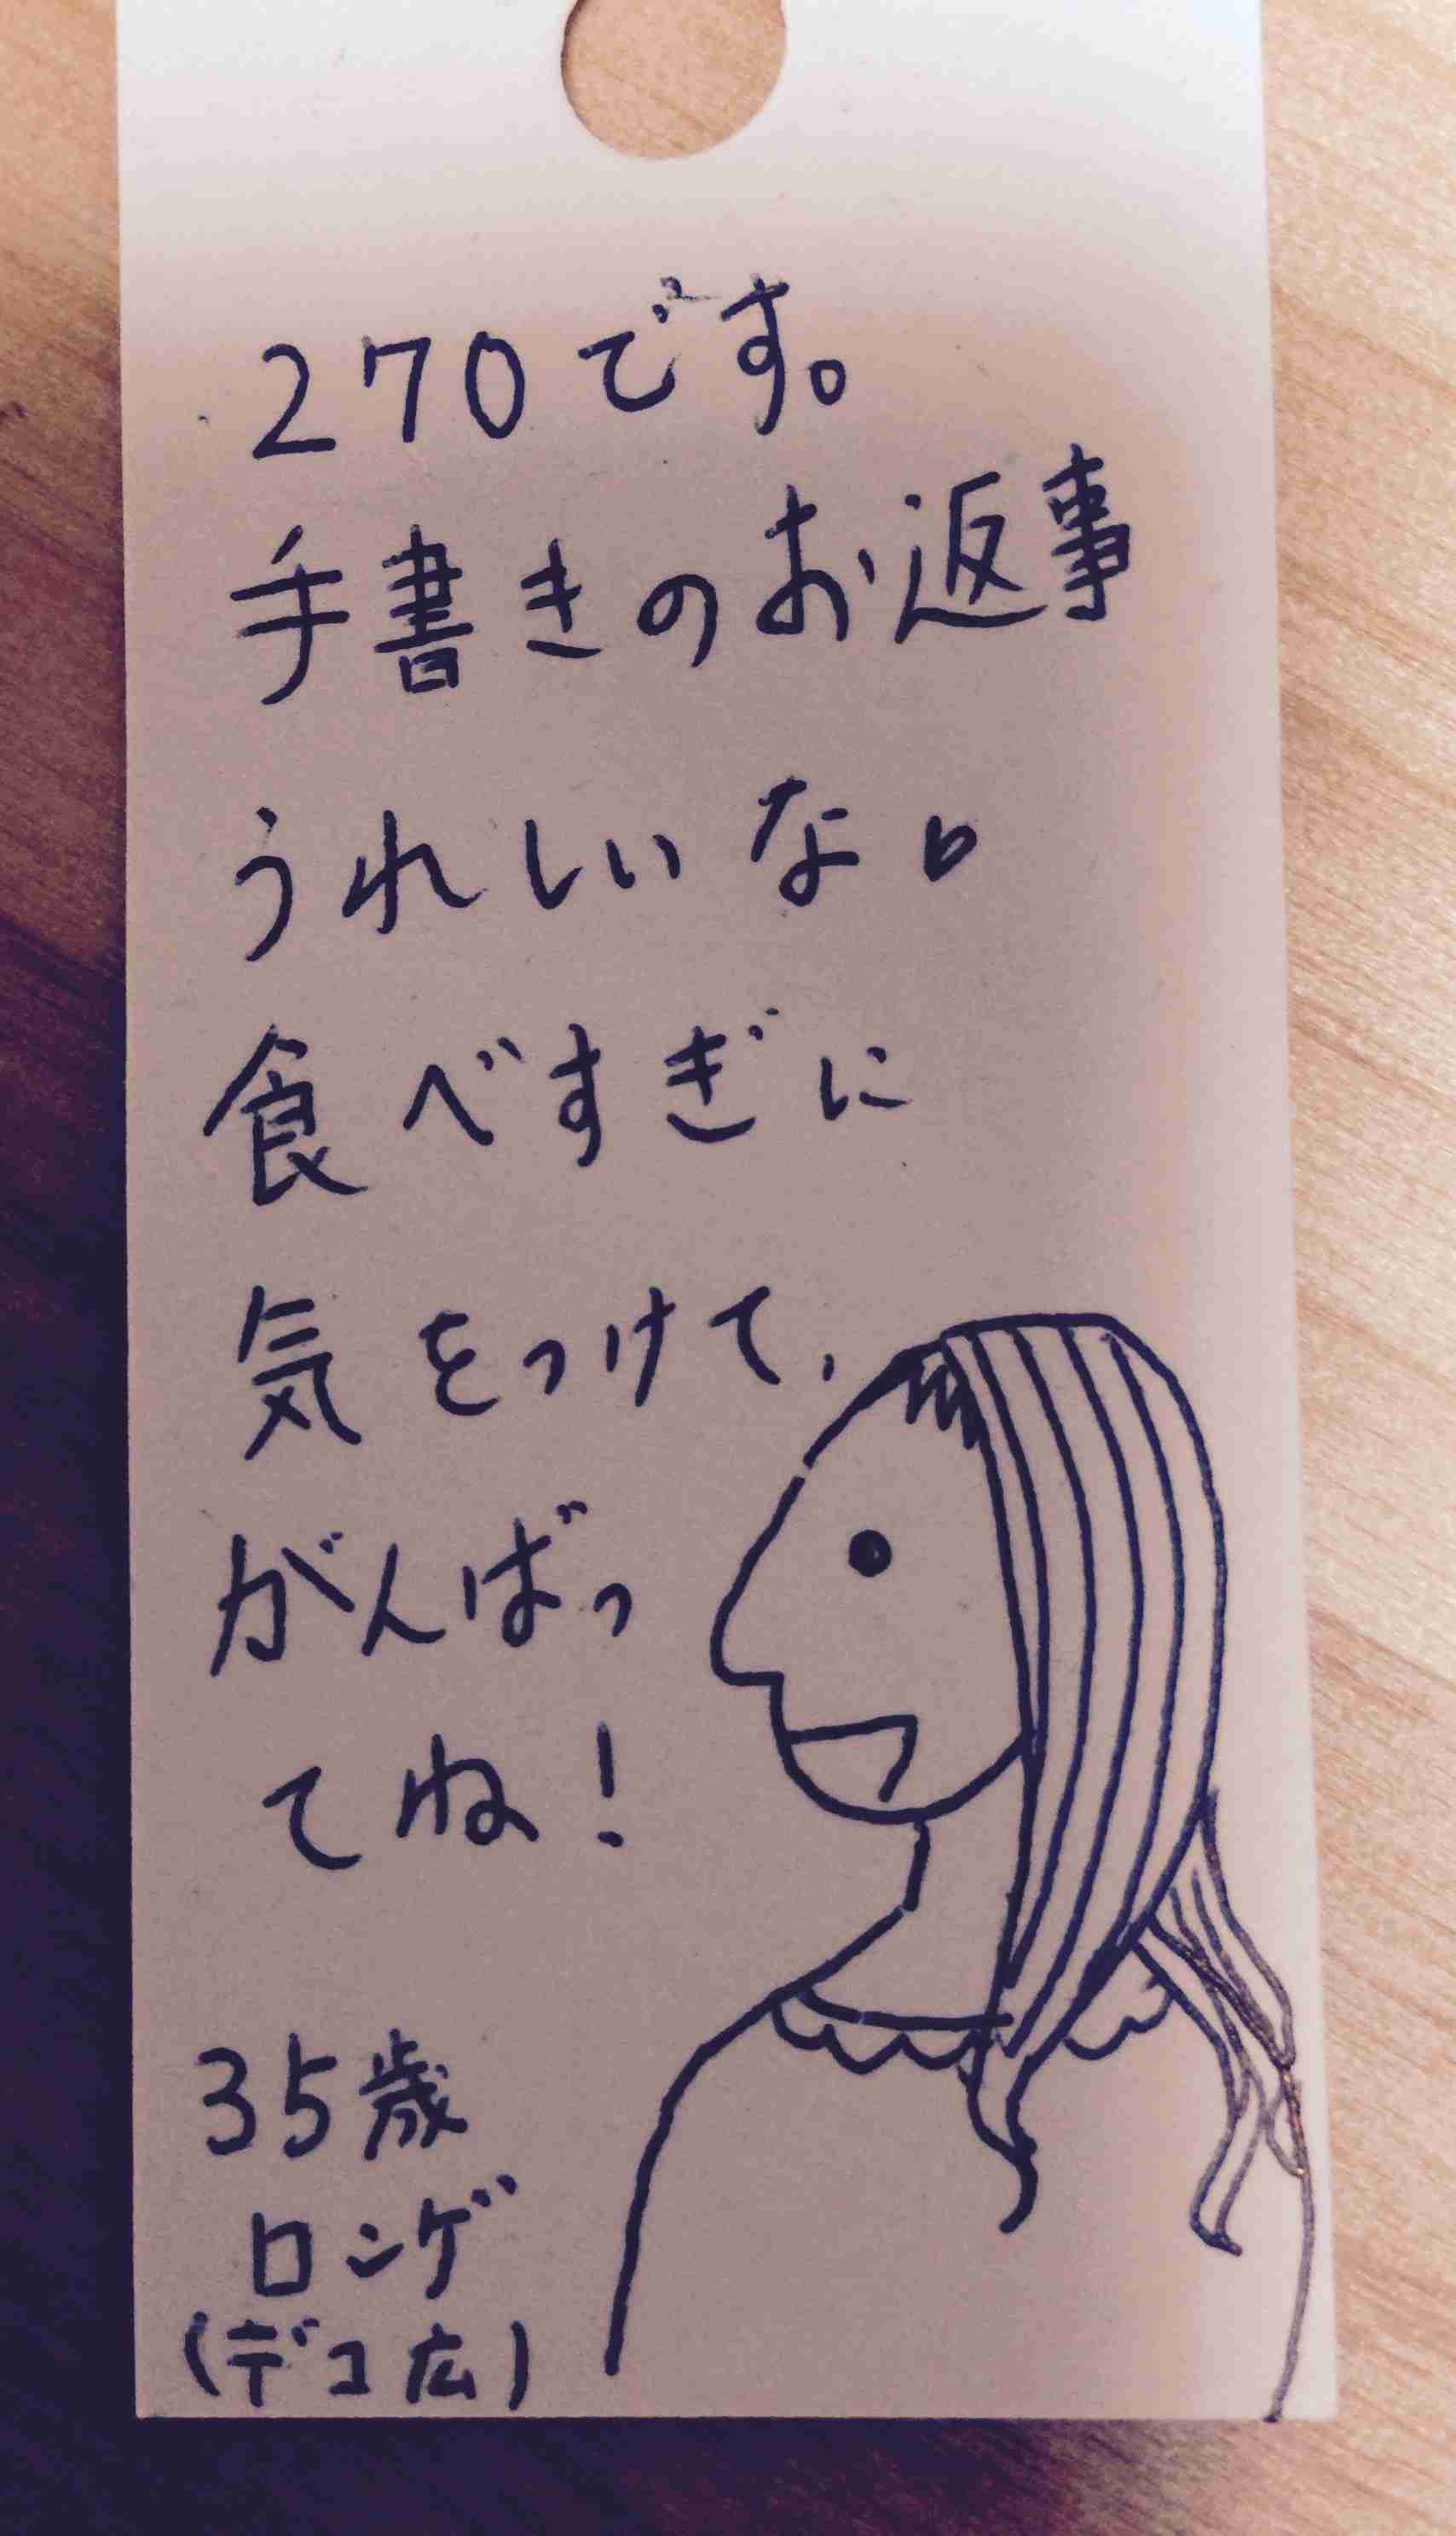 270です。
手書きのお返事
うれしいな♡
食べすぎに
気をつけて、
がんばっ
てね!
35歳
ロンゲ
(デコ広)